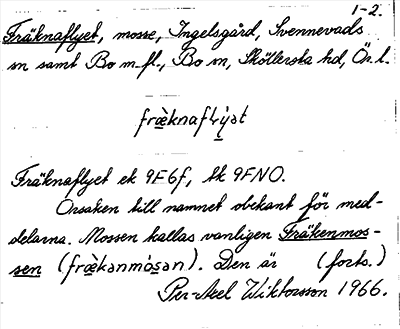 1-2.
Fräknaflyet, mosse, Ingelsgård, Svennevads
sn samt Bo m.fl., Bo sn, Sköllersta hd, Ör. l.
Fräknaflyet ek 9F6f, tk 9FNO.
Orsaken till namnet obekant för med-
delarna. Mossen kallas vanligen Fräkenmos-
sen (fræ̀kanmȯ̀san). Den är (forts.)
Per-Axel Wiktorsson 1966.